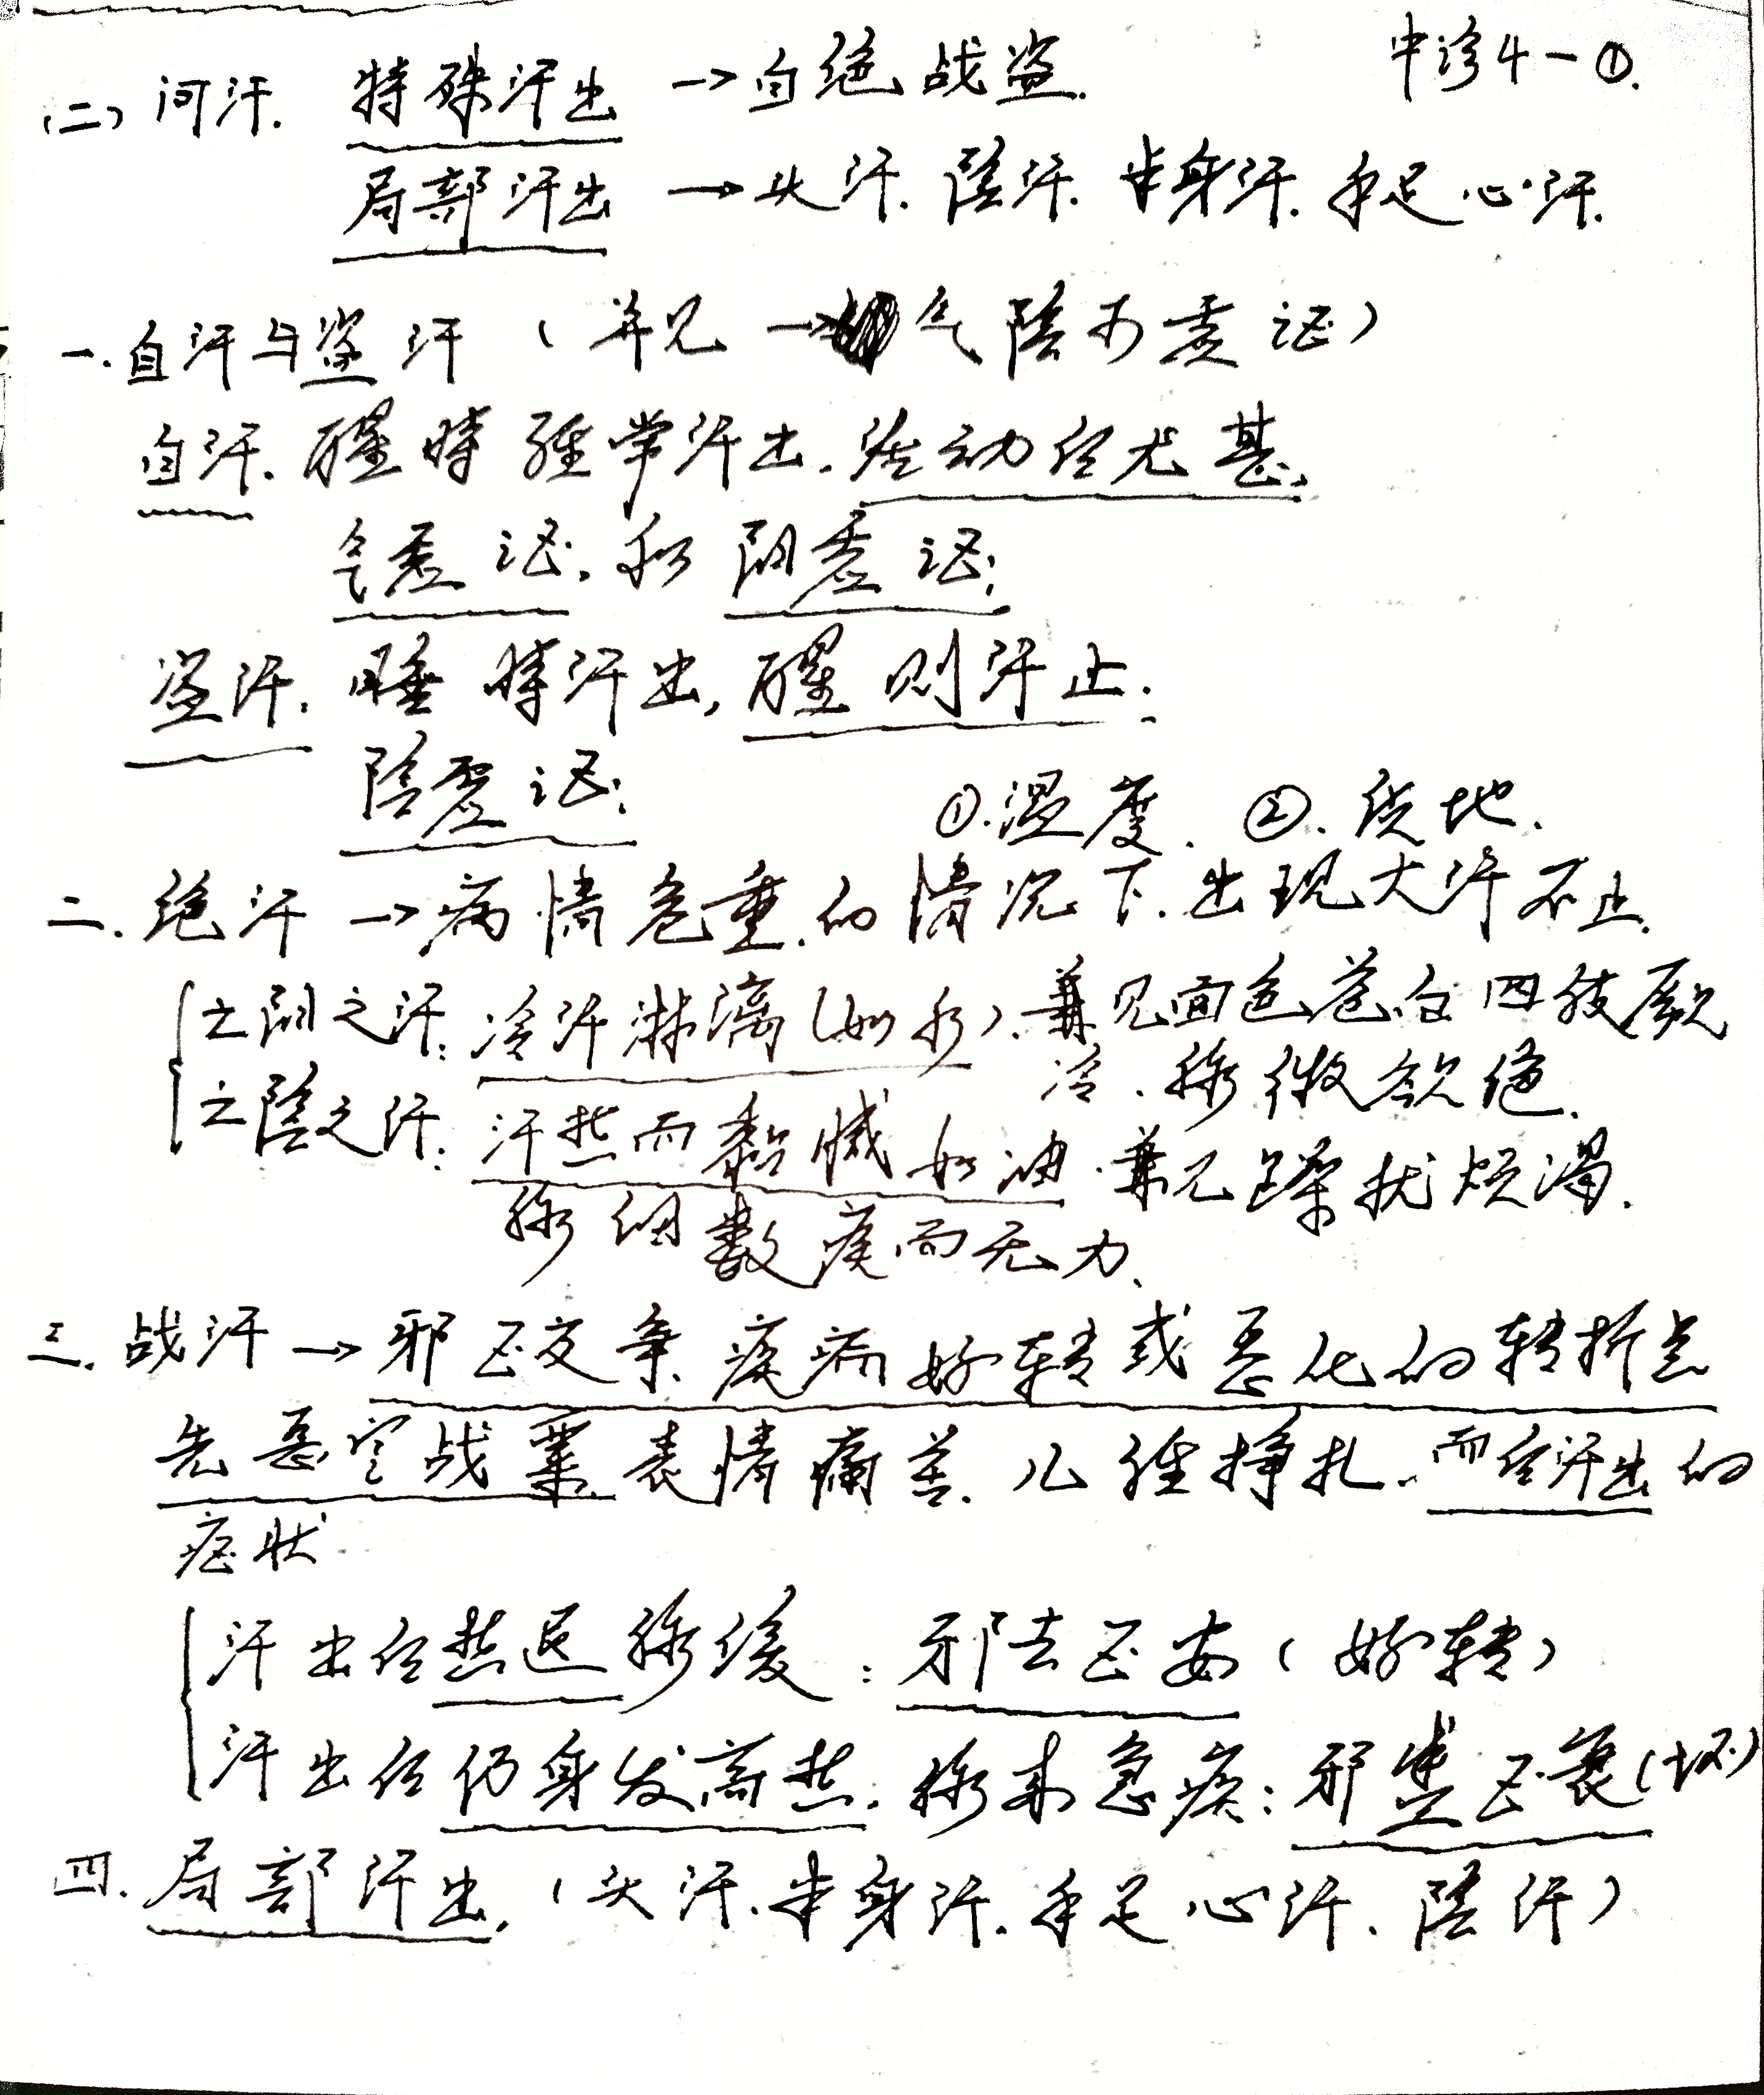 中诊4-①.
(二) 问汗. 特殊汗出 → 自绝战盗.
局部汗出 → 头汗. 陰汗. 半身汗. 手足心汗.
一. 自汗与盗汗 ( 并见 → 气陰两虚证 )
自汗. 醒時經常汗出. 活动后尤甚.
气虚证. 和阳虚证;
盗汗. 睡時汗出, 醒则汗止.
陰虚证;
①. 温度. ②. 质地.
二. 绝汗 → 病情危重的情况下. 出现大汗不止.
亡阳之汗: 冷汗淋漓 (如水). 兼见面色苍白四肢厥
冷. 脉微欲绝.
亡陰之汗: 汗热而黏腻如油. 兼见躁扰烦渴.
脉细数疾而无力.
三. 战汗 → 邪正交争. 疾病好转或恶化的转折点
先恶寒战栗. 表情痛苦. 几经挣扎. 而后汗出的
症状
汗出后热退脉缓 : 邪去正安 ( 好转 )
汗出后仍身发高热. 脉来急疾: 邪盛正衰 (坏)
四. 局部汗出, ( 头汗. 半身汗. 手足心汗. 陰汗 )